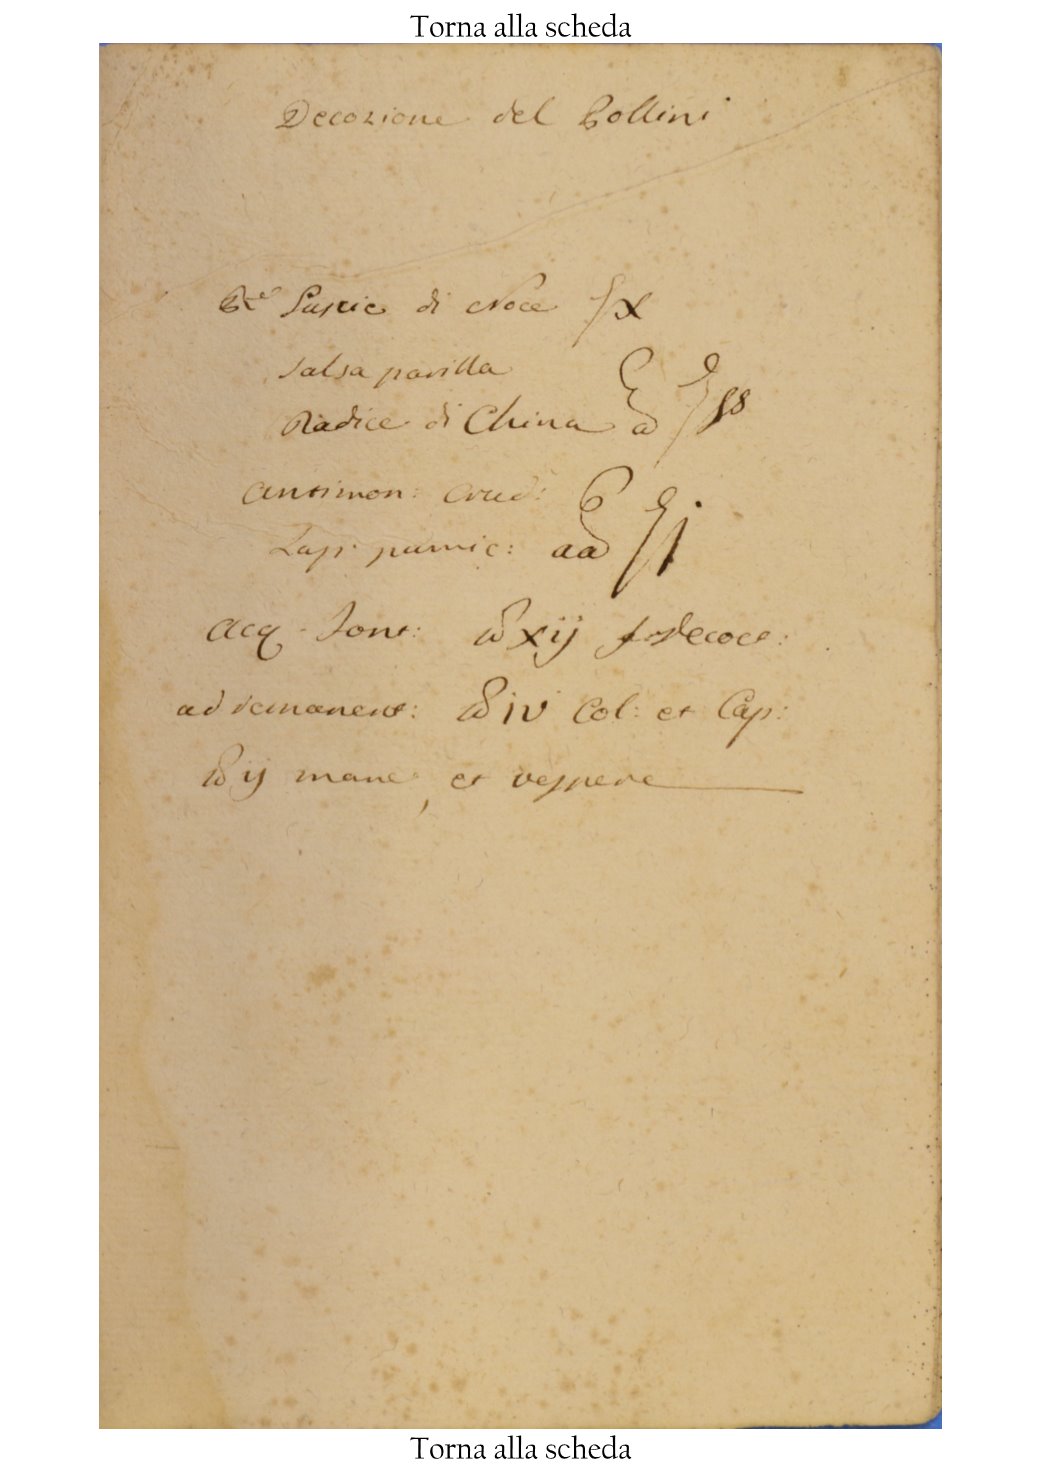 Torna alla scheda
Decozione del Pollini
Rce Puscie di Noce ℥x
salsa parilla
Radice di China aa ℥ss
antimon: crud:
Lap: pumic: aa ℥j
acq. Font: ℔xij f. decoct:
ad remanent: ℔iv Col: et Cap:
℔ij mane, et vespere
Torna alla scheda